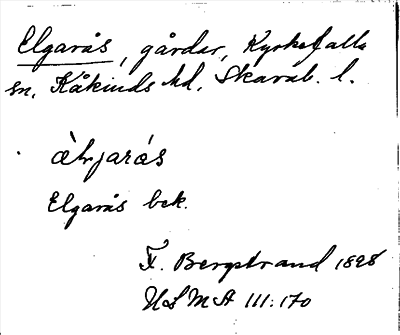 Elgarås, gårdar, Kyrkefalla
sn, Kåkinds hd, Skarab. l.
Elgarås bek.
F. Bergstrand 1898
ULMA 111:170